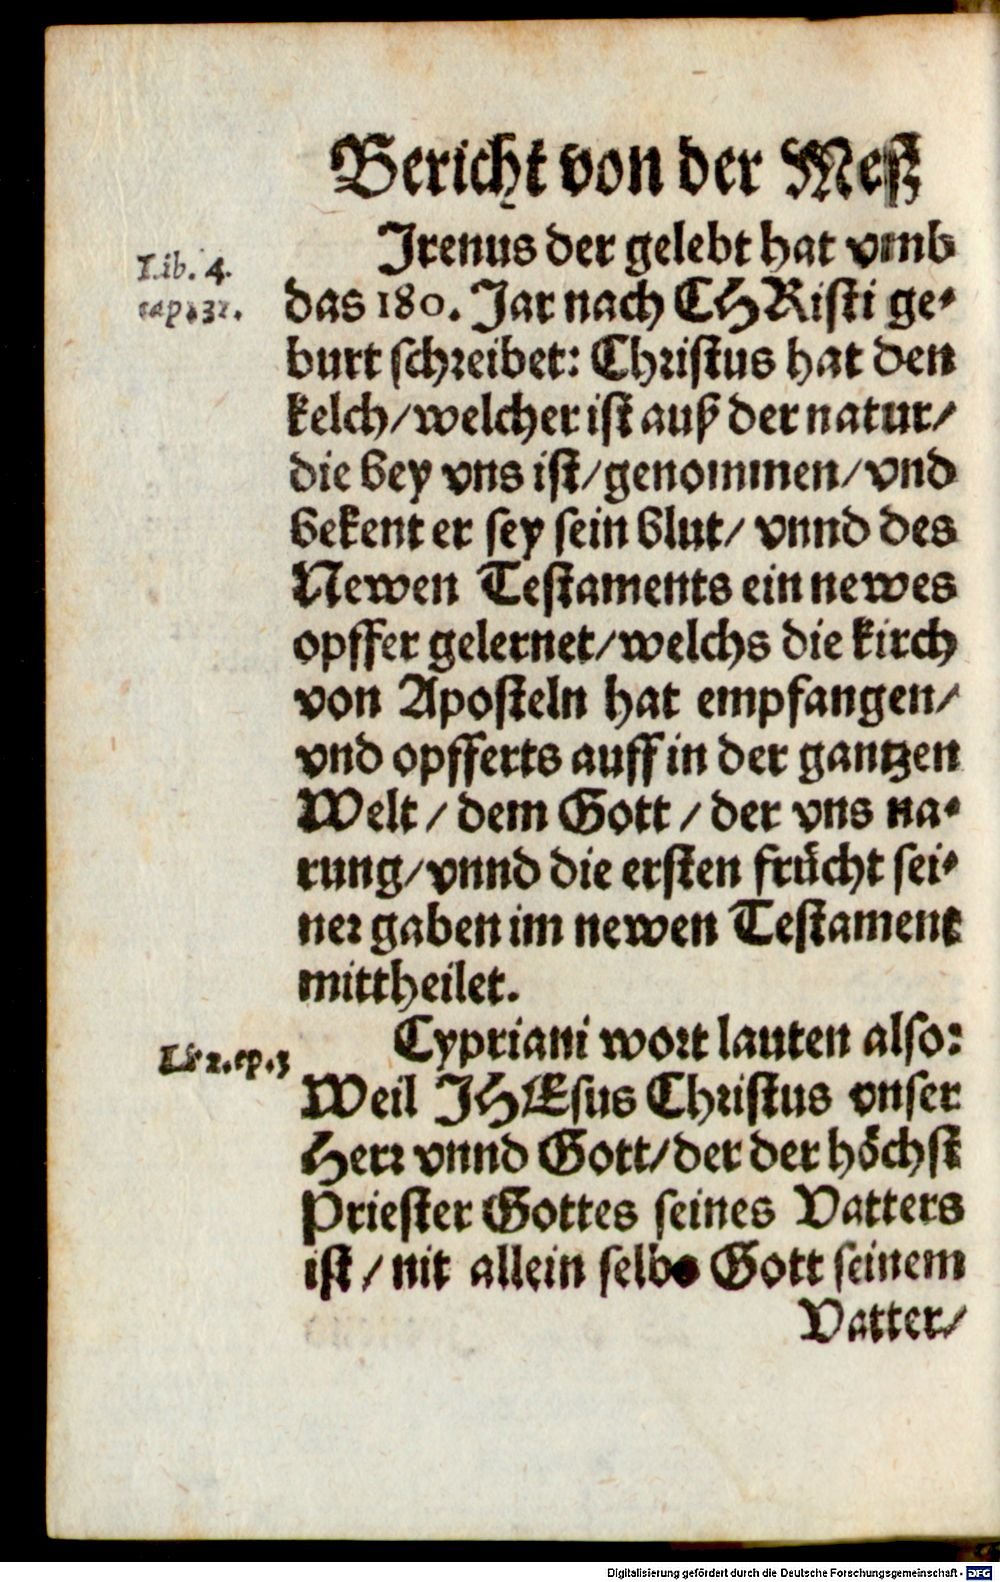 Bericht von der Meß
Irenus der gelebt hat vmb
Lib. 4.
cap. 32.
das 180. Jar nach CHRisti ge-
burt schreibet: Christus hat den
kelch/welcher ist auß der natur/
die bey vns ist/genommen/vnd
bekent er sey sein blut/ vnnd des
Newen Testaments ein newes
opffer gelernet/welchs die kirch
von Aposteln hat empfangen/
vnd opfferts auff in der gantzen
Welt / dem Gott / der vns na-
rung/vnnd die ersten frücht sei-
ner gaben im newen Testament
mittheilet.
Cypriani wort lauten also:
Li. 2. ep. 3
Weil JHEsus Christus vnser
Herr vnnd Gott/der der höchst
Priester Gottes seines Vatters
ist / nit allein selbs Gott seinem
Vatter/
Digitalisierung gefördert durch die Deutsche Forschungsgemeinschaft - DFG